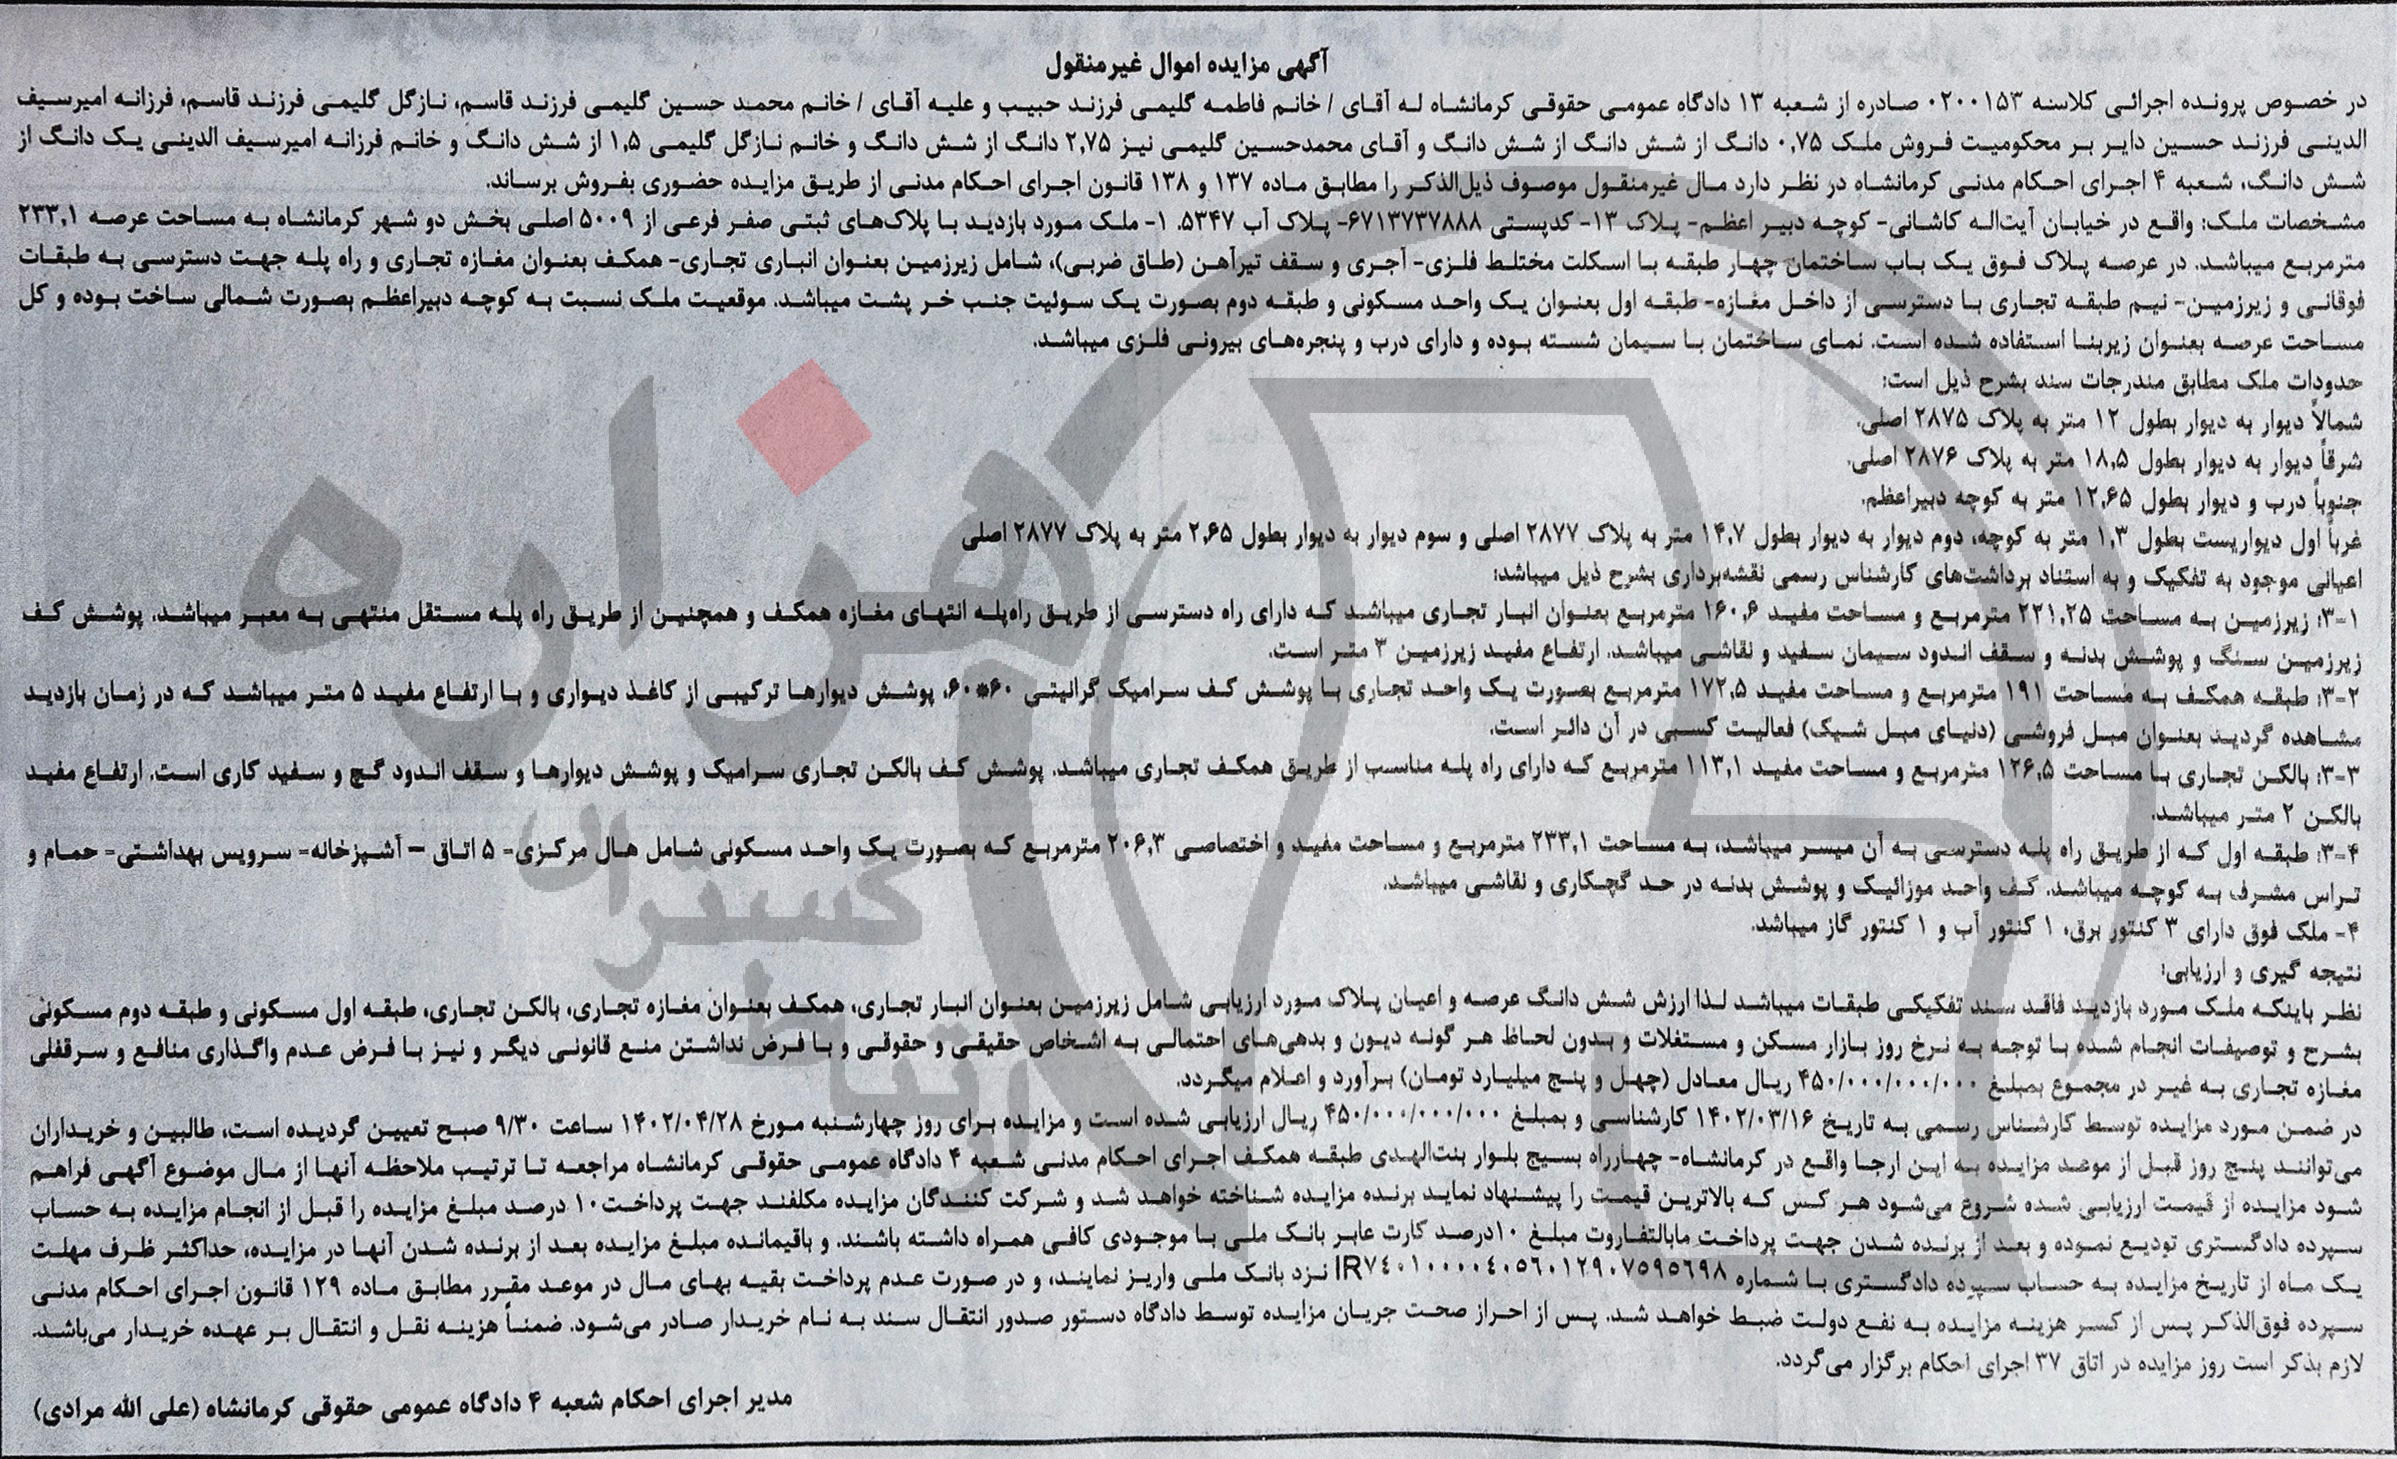 آگهی مزایده اموال غیرمنقول
در خصوص پرونده اجرائی کلاسه ۰۲۰۰۱۵۳ صادره از شعبه ۱۳ دادگاه عمومی حقوقی کرمانشاه له آقای / خانم فاطمه گلیمی فرزند حبیب و علیه آقای / خانم محمد حسین گلیمی فرزند قاسم، نازگل گلیمی فرزند قاسم، فرزانه امیرسیف
الدینی فرزند حسین دایر بر محکومیت فروش ملک ۰,۷۵ دانگ از شش دانگ از شش دانگ و آقای محمدحسین گلیمی نیز ۲,۷۵ دانگ از شش دانگ و خانم نازگل گلیمی ۱,۵ از شش دانگ و خانم فرزانه امیرسیف الدینی یک دانگ از
شش دانگ، شعبه ۴ اجرای احکام مدنی کرمانشاه در نظر دارد مال غیرمنقول موصوف ذیل‌الذکر را مطابق ماده ۱۳۷ و ۱۳۸ قانون اجرای احکام مدنی از طریق مزایده حضوری بفروش برساند.
مشخصات ملک: واقع در خیابان آیت‌اله کاشانی- کوچه دبیر اعظم- پلاک ۱۳- کدپستی ۶۷۱۳۷۳۷۸۸۸- پلاک آب ۵۳۴۷. ۱- ملک مورد بازدید با پلاک‌های ثبتی صفر فرعی از ۵۰۰۹ اصلی بخش دو شهر کرمانشاه به مساحت عرصه ۲۳۳,۱
مترمربع میباشد. در عرصه پلاک فوق یک باب ساختمان چهار طبقه با اسکلت مختلط فلزی- آجری و سقف تیرآهن (طاق ضربی)، شامل زیرزمین بعنوان انباری تجاری- همکف بعنوان مغازه تجاری و راه پله جهت دسترسی به طبقات
فوقانی و زیرزمین- نیم طبقه تجاری با دسترسی از داخل مغازه- طبقه اول بعنوان یک واحد مسکونی و طبقه دوم بصورت یک سوئیت جنب خر پشت میباشد. موقعیت ملک نسبت به کوچه دبیراعظم بصورت شمالی ساخت بوده و کل
مساحت عرصه بعنوان زیربنا استفاده شده است. نمای ساختمان با سیمان شسته بوده و دارای درب و پنجره‌های بیرونی فلزی میباشد.
حدودات ملک مطابق مندرجات سند بشرح ذیل است:
شمالاً دیوار به دیوار بطول ۱۲ متر به پلاک ۲۸۷۵ اصلی.
شرقاً دیوار به دیوار بطول ۱۸,۵ متر به پلاک ۲۸۷۶ اصلی.
جنوباً درب و دیوار بطول ۱۲,۶۵ متر به کوچه دبیراعظم.
غرباً اول دیواریست بطول ۱,۳ متر به کوچه، دوم دیوار به دیوار بطول ۱۴,۷ متر به پلاک ۲۸۷۷ اصلی و سوم دیوار به دیوار بطول ۲,۶۵ متر به پلاک ۲۸۷۷ اصلی
اعیانی موجود به تفکیک و به استناد برداشت‌های کارشناس رسمی نقشه‌برداری بشرح ذیل میباشد:
۳-۱: زیرزمین به مساحت ۲۳۱,۲۵ مترمربع و مساحت مفید ۱۶۰,۶ مترمربع بعنوان انبار تجاری میباشد که دارای راه دسترسی از طریق راه‌پله انتهای مغازه همکف و همچنین از طریق راه پله مستقل منتهی به معبر میباشد. پوشش کف
زیرزمین سنگ و پوشش بدنه و سقف اندود سیمان سفید و نقاشی میباشد. ارتفاع مفید زیرزمین ۳ متر است.
۳-۲: طبقه همکف به مساحت ۱۹۱ مترمربع و مساحت مفید ۱۷۲,۵ مترمربع بصورت یک واحد تجاری با پوشش کف سرامیک گرانیتی ۶۰*۶۰، پوشش دیوارها ترکیبی از کاغذ دیواری و با ارتفاع مفید ۵ متر میباشد که در زمان بازدید
مشاهده گردید بعنوان مبل فروشی (دنیای مبل شیک) فعالیت کسبی در آن دائر است.
۳-۳: بالکن تجاری با مساحت ۱۲۶,۵ مترمربع و مساحت مفید ۱۱۳,۱ مترمربع که دارای راه پله مناسب از طریق همکف تجاری میباشد. پوشش کف بالکن تجاری سرامیک و پوشش دیوارها و سقف اندود گچ و سفید کاری است. ارتفاع مفید
بالکن ۲ متر میباشد.
۳-۴: طبقه اول که از طریق راه پله دسترسی به آن میسر میباشد، به مساحت ۲۳۳,۱ مترمربع و مساحت مفید و اختصاصی ۲۰۶,۳ مترمربع که بصورت یک واحد مسکونی شامل هال مرکزی- ۵ اتاق – آشپزخانه- سرویس بهداشتی- حمام و
تراس مشرف به کوچه میباشد. کف واحد موزائیک و پوشش بدنه در حد گچکاری و نقاشی میباشد.
۴- ملک فوق دارای ۳ کنتور برق، ۱ کنتور آب و ۱ کنتور گاز میباشد.
نتیجه گیری و ارزیابی:
نظر باینکه ملک مورد بازدید فاقد سند تفکیکی طبقات میباشد لذا ارزش شش دانگ عرصه و اعیان پلاک مورد ارزیابی شامل زیرزمین بعنوان انبار تجاری، همکف بعنوان مغازه تجاری، بالکن تجاری، طبقه اول مسکونی و طبقه دوم مسکونی
بشرح و توصیفات انجام شده با توجه به نرخ روز بازار مسکن و مستغلات و بدون لحاظ هر گونه دیون و بدهی‌های احتمالی به اشخاص حقیقی و حقوقی و با فرض نداشتن منع قانونی دیگر و نیز با فرض عدم واگذاری منافع و سرقفلی
مغازه تجاری به غیر در مجموع بمبلغ ۴۵۰/۰۰۰/۰۰۰/۰۰۰ ریال معادل (چهل و پنج میلیارد تومان) برآورد و اعلام میگردد.
در ضمن مورد مزایده توسط کارشناس رسمی به تاریخ ۱۴۰۲/۰۳/۱۶ کارشناسی و بمبلغ ۴۵۰/۰۰۰/۰۰۰/۰۰۰ ریال ارزیابی شده است و مزایده برای روز چهارشنبه مورخ ۱۴۰۲/۰۴/۲۸ ساعت ۹/۳۰ صبح تعیین گردیده است، طالبین و خریداران
می‌توانند پنج روز قبل از موعد مزایده به این ارجا واقع در کرمانشاه- چهارراه بسیج بلوار بنت‌الهدی طبقه همکف اجرای احکام مدنی شعبه ۴ دادگاه عمومی حقوقی کرمانشاه مراجعه تا ترتیب ملاحظه آنها از مال موضوع آگهی فراهم
شود مزایده از قیمت ارزیابی شده شروع می‌شود هر کس که بالاترین قیمت را پیشنهاد نماید برنده مزایده شناخته خواهد شد و شرکت کنندگان مزایده مکلفند جهت پرداخت۱۰ درصد مبلغ مزایده را قبل از انجام مزایده به حساب
سپرده دادگستری تودیع نموده و بعد از برنده شدن جهت پرداخت مابالتفاروت مبلغ ۱۰درصد کارت عابر بانک ملی با موجودی کافی همراه داشته باشند. و باقیمانده مبلغ مزایده بعد از برنده شدن آنها در مزایده، حداکثر ظرف مهلت
یک ماه از تاریخ مزایده به حساب سپرده دادگستری با شماره IR۷٤۰۱۰۰۰۰٤۰٥٦۰۱۲۹۰۷٥۹٥٦۹۸ نزد بانک ملی واریز نمایند، و در صورت عدم پرداخت بقیه بهای مال در موعد مقرر مطابق ماده ۱۲۹ قانون اجرای احکام مدنی
سپرده فوق‌الذکر پس از کسر هزینه مزایده به نفع دولت ضبط خواهد شد. پس از احراز صحت جریان مزایده توسط دادگاه دستور صدور انتقال سند به نام خریدار صادر می‌شود. ضمناً هزینه نقل و انتقال بر عهده خریدار می‌باشد.
لازم بذکر است روز مزایده در اتاق ۳۷ اجرای احکام برگزار می‌گردد.
مدیر اجرای احکام شعبه ۴ دادگاه عمومی حقوقی کرمانشاه (علی الله مرادی)
هزاره
گستران
ارتباط